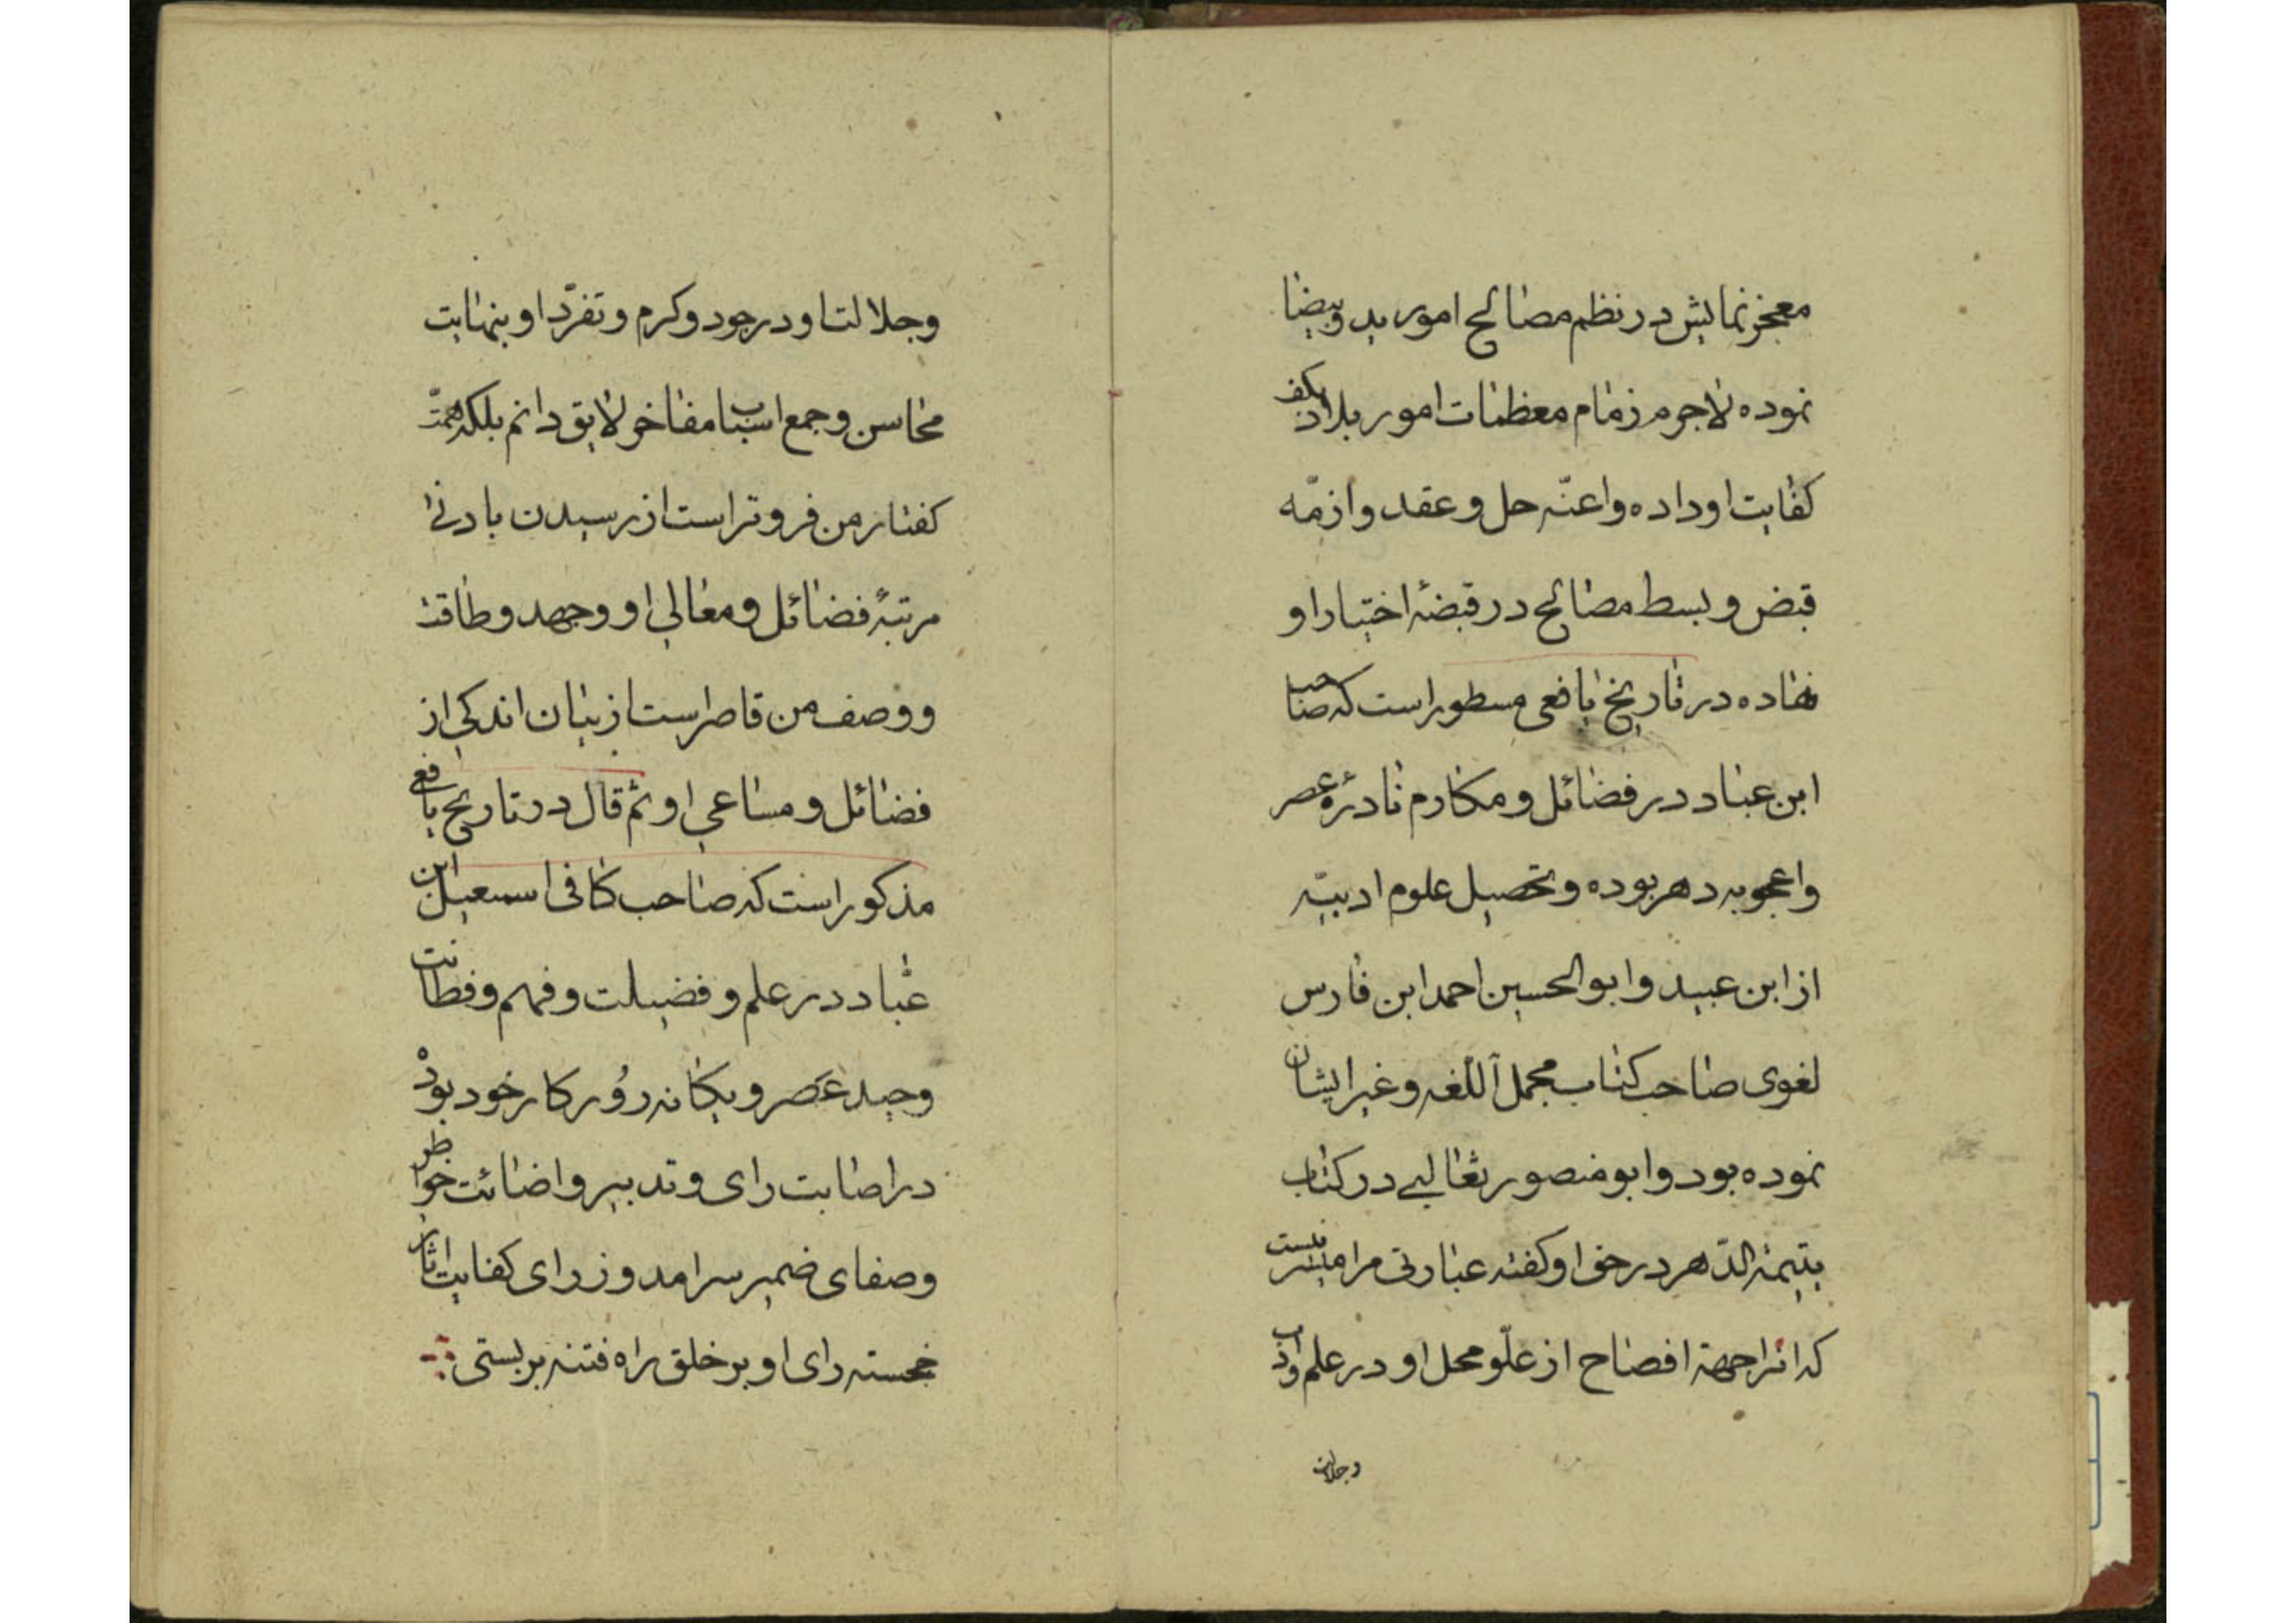 معجز نمایش در نظم مصالح امور ید وبیضا
نموده لاجرم زمام معظمات امور بلاد بکف
کفایت او داده واعنّه حل و عقد وازمّه
قبض و بسط مصالح در قبضهٔ اختیار او
نهاده در تاریخ یافعی مسطور است که صاحب
ابن عباد در فضائل و مکارم نادرهٔ عصر
واعجوبه دهر بوده و تحصیل علوم ادبیّه
از ابن عبید وابو الحسین احمد ابن فارس
لغوی صاحب کتاب مجمل اللّغه و غیر ایشان
نموده بود وابو منصور ثعالبی در کتاب
یتیمة الدّهر در حق او کفته عبارتی مرا میسّر نیست
که انرا جهة افصاح از علّو محل او در علم وادب
وجلالت
وجلالت او در جود و کرم و تفرّد او بنهایت
محاسن و جمع اسباب مفاخر لایق دانم بلکه همّت
کفتار من فروتر است از رسیدن بادنی
مرتبهٔ فضائل و معالی او و جهد و طاقت
و وصف من قاصر است از بیان اندکی از
فضائل و مساعی او ثم قال در تاریخ یافعی
مذکور است که صاحب کافی اسمعیل ابن
عبّاد در علم و فضیلت و فهم و فطانت
وحید عصر و یکانه روزکار خود بوده
در اصابت رای و تدبیر واضائت خواطر
وصفای ضمیر سرامد وزرای کفایت اثار
خجسته رای او بر خلق راه فتنه بر بستی